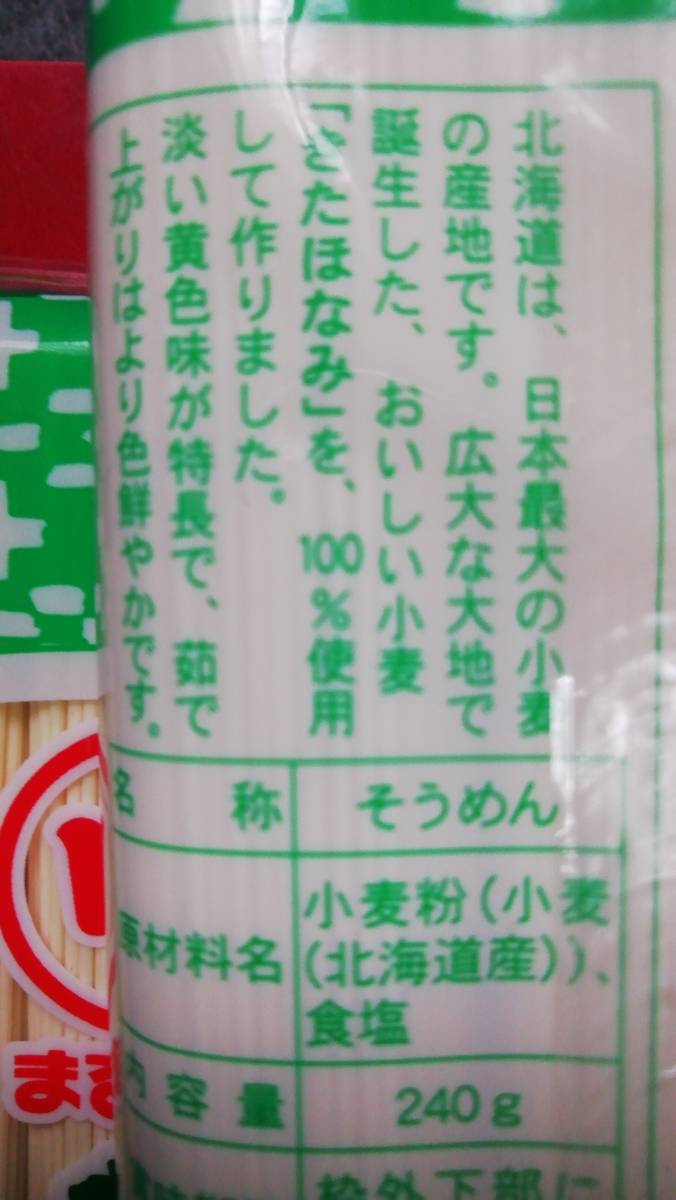 北海道は、日本最大の小麦
の産地です。広大な大地で
誕生した、おいしい小麦
「きたほなみ」を、100%使用
して作りました。
淡い黄色味が特長で、茹で
上がりはより色鮮やかです。
名 称
そうめん
原材料名
小麦粉(小麦
(北海道産))、
食塩
内容量
240g
枠外下部に